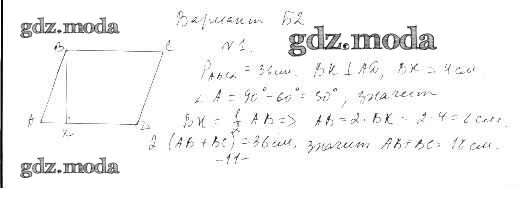 Вариант Б2
gdz.moda
gdz.moda
N 1.
B C
P ABCD = 36 см. BK ⊥ AD, BK = 4 см.
∠ A = 90° - 60° = 30°, значит
A K D
BK = 1/2 AB => AB = 2 · BK = 2 · 4 = 8 см.
2 (AB + BC) = 36 см. значит AB + BC = 18 см.
-11-
gdz.moda